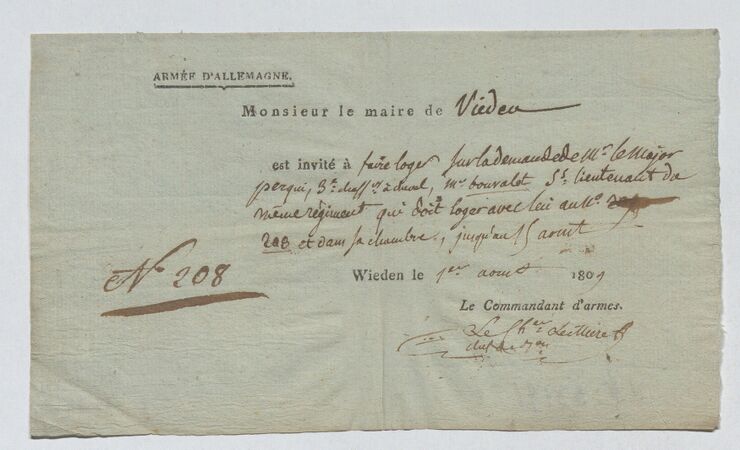 ARMÉE D'ALLEMAGNE.
Monsieur le maire de Vieden
est invité à faire loger sur la demande de Mr. le Major
perqui, 3e. chassrs à cheval, Mr. bouvalet Ss. lieutenant du
même régiment qui doit loger avec lui au No.
208 et dans sa chambre, jusqu'au 15 aoust
No 208
Wieden le 1er aoust 1809
Le Commandant d'armes.
Le Cher